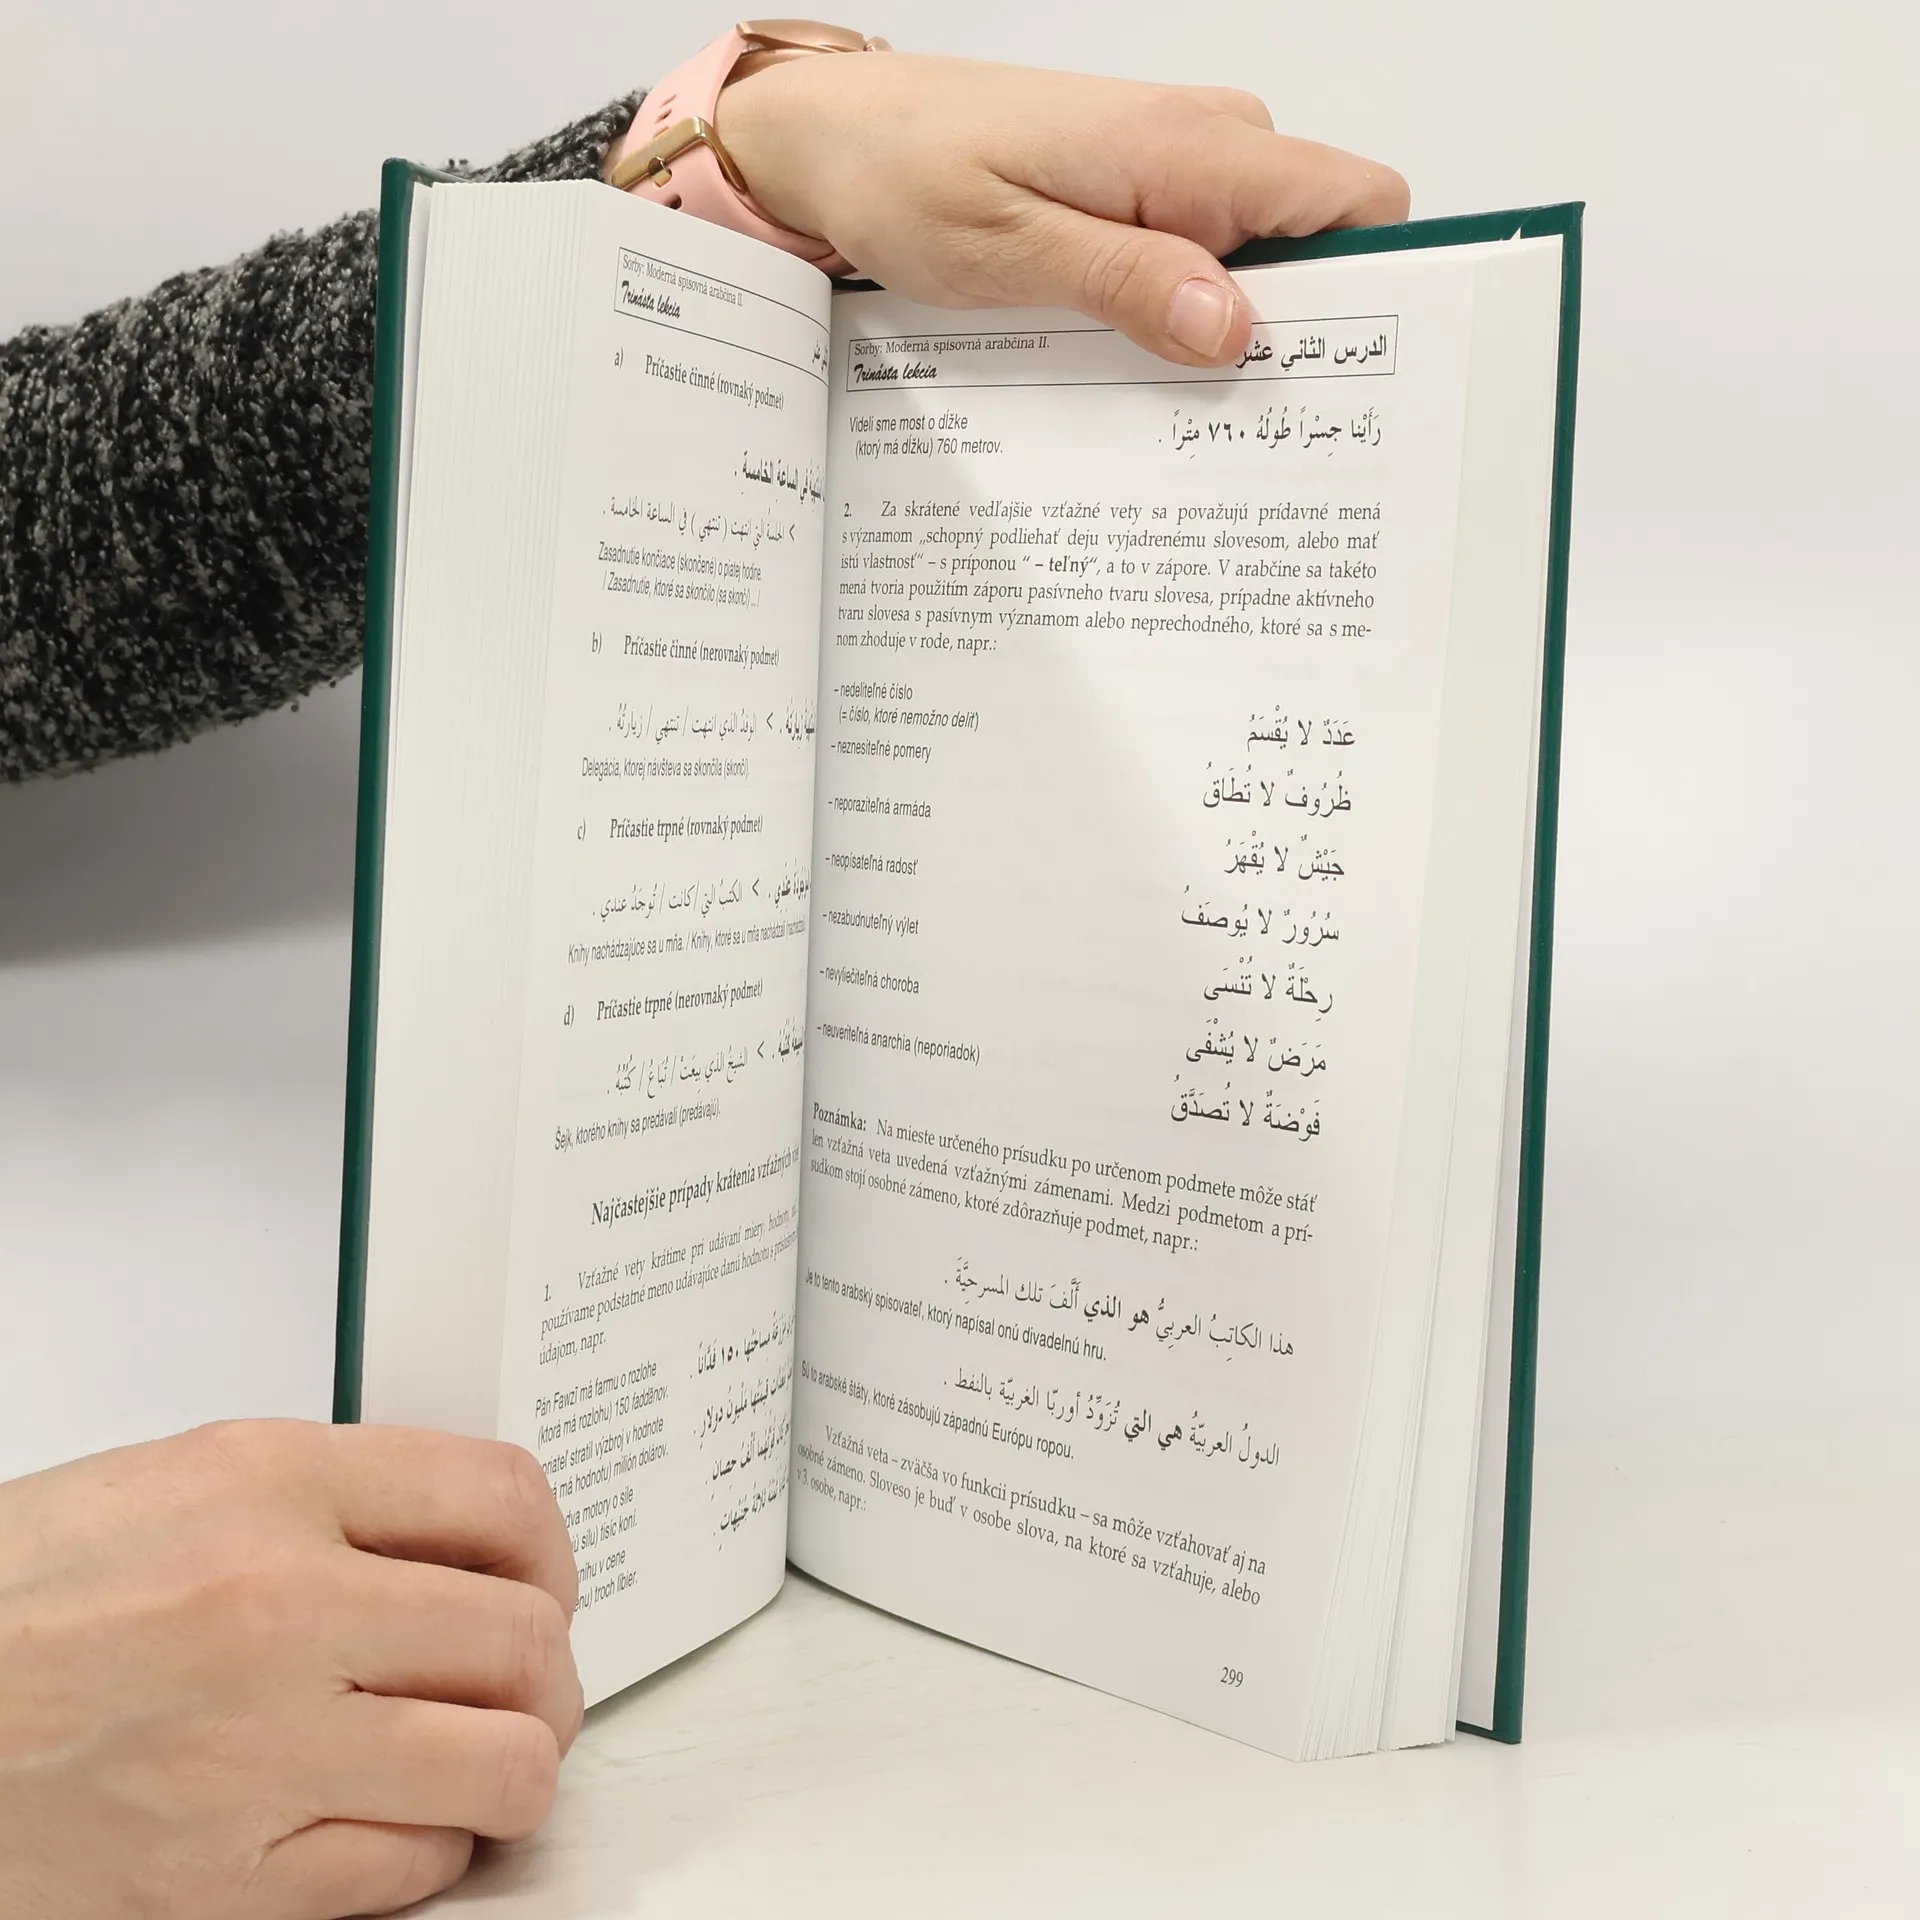 Sorby: Moderná spisovná arabčina II.
Trinásta lekcia
a) Príčastie činné (rovnaký podmet)
في الساعة الخامسةِ .
> الجلسةُ التي انتهت ( تنتهي ) في الساعة الخامسة .
Zasadnutie končiace (skončené) o piatej hodine.
/ Zasadnutie, ktoré sa skončilo (sa skončí) .../
b) Príčastie činné (nerovnaký podmet)
زيارتُهُ . > الوفدُ الذي انتهت / تنتهي / زيارتُهُ .
Delegácia, ktorej návšteva sa skončila (skončí).
c) Príčastie trpné (rovnaký podmet)
عِنْدِي . > الكتبُ التي /كانت / تُوجَدُ عندي .
Knihy nachádzajúce sa u mňa. / Knihy, ktoré sa u mňa nachádzali
d) Príčastie trpné (nerovnaký podmet)
كُتُبُهُ . > الشيخُ الذي بِيعَتْ / تُبَاعُ / كُتُبُهُ .
Šejk, ktorého knihy sa predávali (predávajú).
Najčastejšie prípady krátenia vzťažných
1. Vzťažné vety krátime pri udávaní miery, hodnoty,
používame podstatné meno udávajúce danú hodnotu s
údajom, napr.
Pán Fawzī má farmu o rozlohe
مساحتُها ١٥٠ فَدَّاناً .
(ktorá má rozlohu) 150 faddānov.
stratil výzbroj v hodnote
قيمتُها مَلْيونُ دولارٍ .
má hodnotu) milión dolárov.
dva motory o sile
أَلْفُ حِصانٍ .
silu) tisíc koní.
knihu v cene
ثلاثةُ جُنَيْهاتٍ .
troch libier.
Sorby: Moderná spisovná arabčina II.
الدرس الثاني عشر
Trinásta lekcia
Videli sme most o dĺžke
رَأَيْنا جِسْراً طُولُهُ ٧٦٠ مِتْراً .
(ktorý má dĺžku) 760 metrov.
2. Za skrátené vedľajšie vzťažné vety sa považujú prídavné mená
s významom „schopný podliehať deju vyjadrenému slovesom, alebo mať
istú vlastnosť“ – s príponou “ – teľný“, a to v zápore. V arabčine sa takéto
mená tvoria použitím záporu pasívneho tvaru slovesa, prípadne aktívneho
tvaru slovesa s pasívnym významom alebo neprechodného, ktoré sa s me-
nom zhoduje v rode, napr.:
– nedeliteľné číslo
(= číslo, ktoré nemožno deliť)
عَدَدٌ لا يُقْسَمُ
– neznesiteľné pomery
ظُرُوفٌ لا تُطَاقُ
– neporaziteľná armáda
جَيْشٌ لا يُقْهَرُ
– neopísateľná radosť
سُرُورٌ لا يُوصَفُ
– nezabudnuteľný výlet
رِحْلَةٌ لا تُنْسَى
– nevyliečiteľná choroba
مَرَضٌ لا يُشْفَى
– neuveriteľná anarchia (neporiadok)
فَوْضَةٌ لا تُصَدَّقُ
Poznámka: Na mieste určeného prísudku po určenom podmete môže stáť
len vzťažná veta uvedená vzťažnými zámenami. Medzi podmetom a prí-
sudkom stojí osobné zámeno, ktoré zdôrazňuje podmet, napr.:
هذا الكاتِبُ العربِيُّ هو الذي أَلَّفَ تلك المسرحِيَّةَ .
Je to tento arabský spisovateľ, ktorý napísal onú divadelnú hru.
الدولُ العربيّةُ هي التي تُزَوِّدُ أوربّا الغربيّة بالنفط .
Sú to arabské štáty, ktoré zásobujú západnú Európu ropou.
Vzťažná veta – zväčša vo funkcii prísudku – sa môže vzťahovať aj na
osobné zámeno. Sloveso je buď v osobe slova, na ktoré sa vzťahuje, alebo
v 3. osobe, napr.:
299